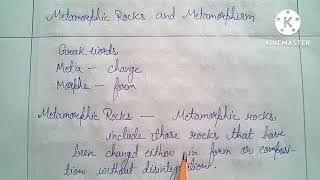 Metamorphic Rocks and Metamorphism
KINEMASTER
Greek words
Meta — change
Morphe — form
Metamorphic Rocks — Metamorphic rocks
include those rocks that have
been changd either in form or composi-
tion without disintegration.